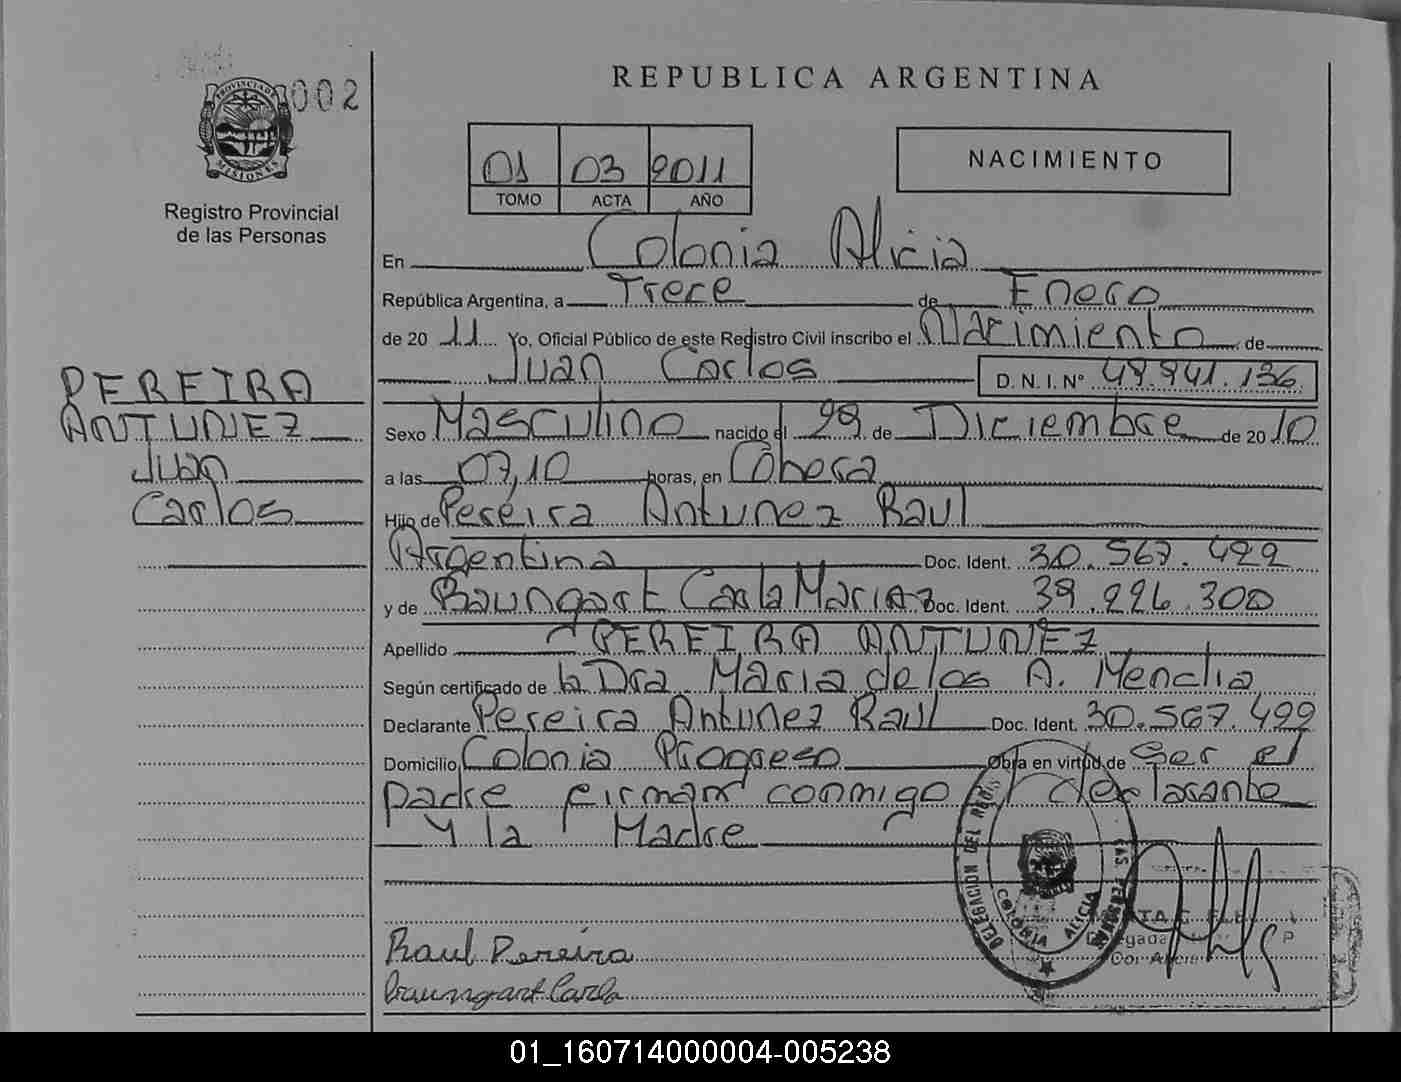 002
PROVINCIA DE
MISIONES
Registro Provincial
de las Personas
PEREIRA
ANTUNEZ
Juan
Carlos
REPUBLICA ARGENTINA
01 03 2011
TOMO ACTA AÑO
NACIMIENTO
En Colonia Alicia
República Argentina, a Trece de Enero
de 20 11 Yo, Oficial Público de este Registro Civil inscribo el Nacimiento de
Juan Carlos D. N. I. Nº
Sexo Masculino nacido el 29 de Diciembre de 20 10
a las 07,10 horas, en Obera
Hijo de Pereira Antunez Raul
Argentina Doc. Ident. 30.567.499
y de Baungart Carla Maria Doc. Ident. 39.226.300
Apellido PEREIRA ANTUNEZ
Según certificado de la Dra Maria de los A. Mendia
Declarante Pereira Antunez Raul Doc. Ident. 30.567.499
Domicilio Colonia Progreso Obra en virtud de ser el
padre firman conmigo el declarante
y la Madre
DELEGACION DEL REGIS LAS PERSONAS
COLONIA ALICIA
Raul Pereira
Baungart Carla
01_160714000004-005238